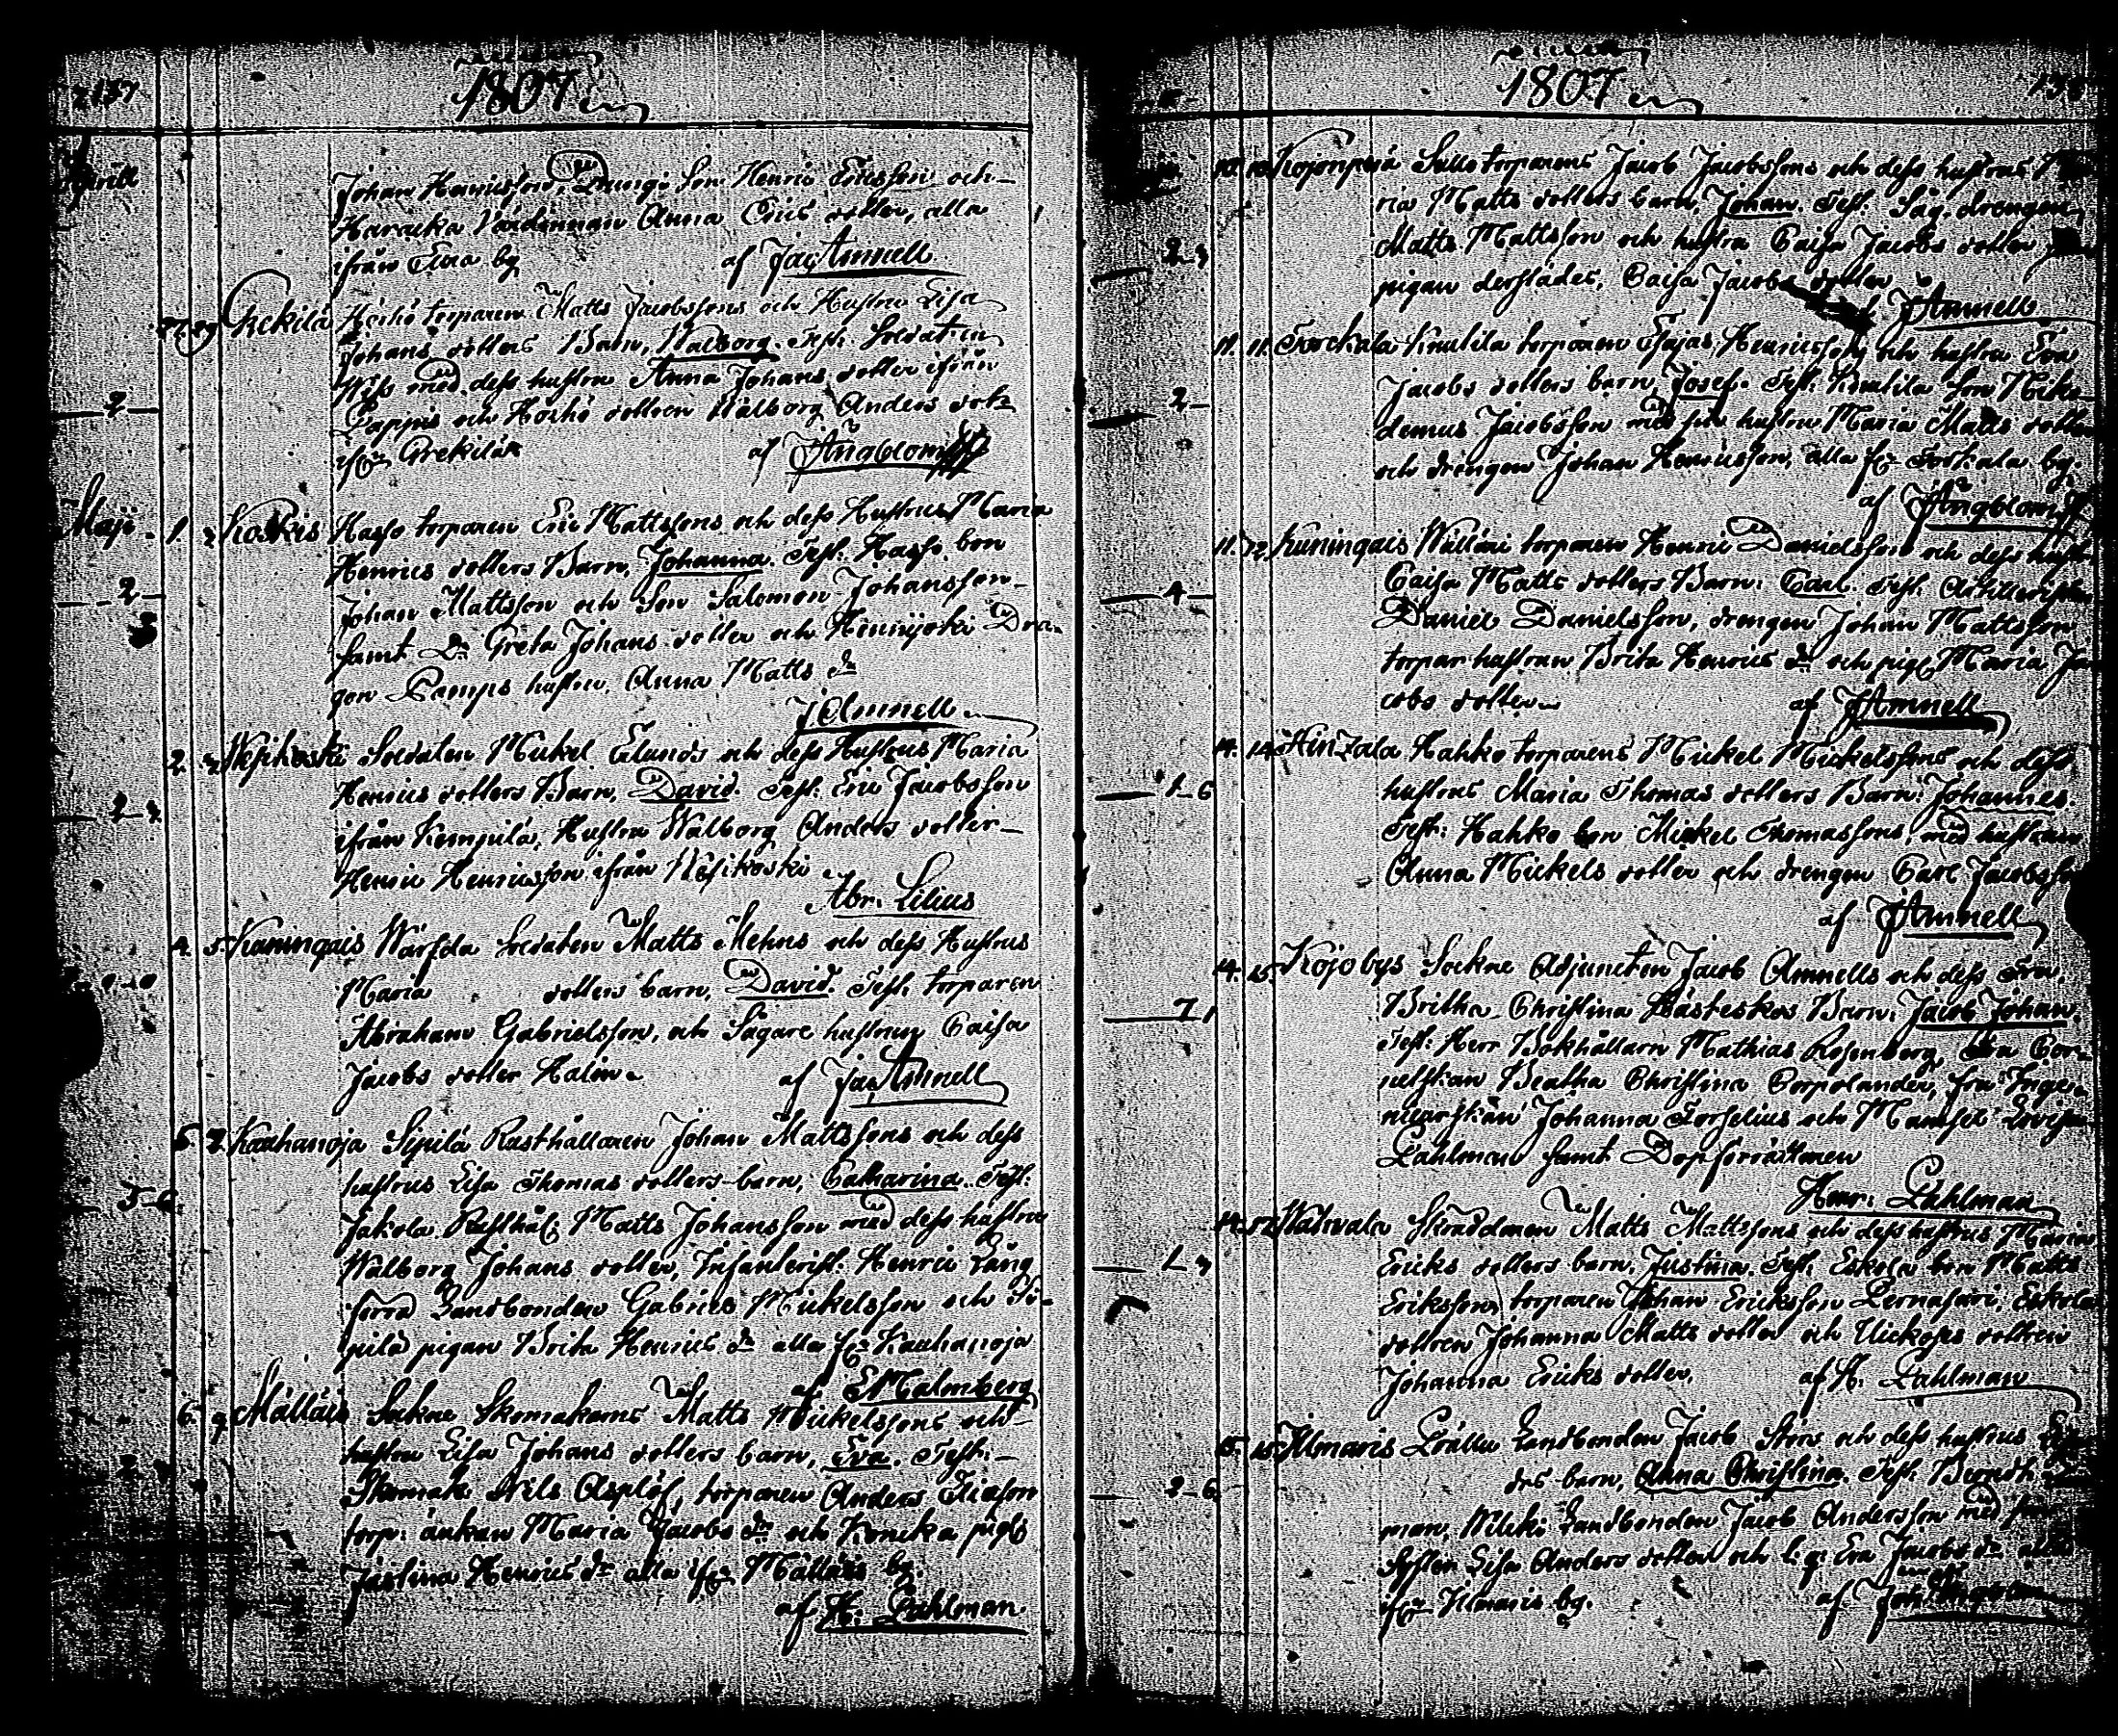 137
1807
Aprill
Johan Henricsson, Drengi Son Henric Ericsson och
Haracka Värdinnan Anna Erics dotter, alla
ifrån Elva by
af Jac Amnell
27 29 Grekilä Hörhö torparen Matts Jacobssons och Hustru Lisa
Johans dotters Barn, Walborg. Test: Soldaten
Wiss med dess hustru Anna Johans dotter ifrån
2
Pappis och Hörhö dottren Walborg Anders dotr
ifrn Grekilä
af J Ångblom
Maji. 1. 2 Koskis Hasso torparen Eric Mattssons och dess Hustrus Maria
Henrics dotters Barn, Johanna. Test: Hasso bon
2
Johan Mattsson och Son Salomon Johansson
samt Dr Greta Johans dotter och Heinijoki Dra-
gon Pamps hustru, Anna Matts dr
J Amnell
2. 3 Wesikoski Soldaten Mickel Elunds och dess Hustrus Maria
Henrics dotters Barn, David. Test: Eric Jacobsson
2-3
ifrån Kempilä, Hustru Walborg Anders dotter
Henric Henricsson ifrån Wesikoski
Abr: Lilius
4. 5 Kuningais Warsda Soldaten Matts Mehns och dess Hustrus
Maria dotters barn, David. Test: torparen
Abraham Gabrielsson, och Sågare hustrun Caisa
Jacobs dotter Halin
af Jac Amnell
5. 7 Kauhanoja Sipilä Rusthållaren Johan Mattssons och dess
hustrus Lisa Thomas dotters barn, Catharina. Test:
5-6
Jakola Rusthål: Matts Johansson med dess hustru
Walborg Johans dotter, Infanterist: Henric Lång
förra Landbonden Gabriel Mickelsson och Si-
pilä pigan Brita Henrics dr alla fr Kauhanoja
af E Malmberg
6. 9 Mälläis Sockne Skomakarns Matts Mickelssons och
hustru Lisa Johans dotters barn, Eva. Test:
Skomak Nils Asplöf, torparen Anders
torp: änkan Maria Jacobs dr och pig:
Justina Henrics dr alla ifrn Mälläis by.
af H: Pahlman
1807
10. 10 Kojonperä Sullo torparens Jacob Jacobssons och dess hustrus Ma
ria Matts dotters barn, Johan. Test: Såg. drengen
2-3
Matts Mattsson och hustru Caisa Jacobs dotter
pigan derstädes, Caisa Jacobs dotter
J Amnell
11. 11. Torkala Knutila torparen Esajas Henricssons och hustru Eva
Jacobs dotters barn, Josef. Test: Knutila Son Niko-
2
demus Jacobsson med sin hustru Maria Matts dotter
och drengen Johan Henricsson, alla fr Torkala by.
af J Ångblom
11. 12 Kuningais Wälläri torparen Henric Danielsson och dess hust
Caisa Matts dotters Barn: Carl. Test: Artilleristen
4
Daniel Danielsson, drengen Johan Mattsson
torpar hustrun Brita Henrics dr och pig: Maria Ja
cobs dotter
af J Amnell
14. 14 Hinzala Hahko torparens Mickel Mickelssons och dess
hustrus Maria Thomas dotters Barn: Johannes.
1-6
Test: Hahko bon Mickel Thomassons, med hustrun
Anna Mickels dotter och drengen Carl Jacobsson
af J Amnell
14. 15. Kojobys Sockne Adjuncten Jacob Amnells och dess Fru
Britha Christina Hästeskos Barn: Jacob Johan.
7
Test: Herr Bokhållarn Mathias Rosenberg, Fru Cor-
nettskan Beatha Christina Corpolander, fru Inge-
nieurskan Johanna Forselius och Mamsel Lovisa
Pahlman samt Dopförrättaren
Henr: Pahlman
14. 17 Wahvala Skräddaren Matts Mattssons och dess hustrus Maria
Ericks dotters barn, Justina. Test: Eskola bon Matts
1-3
Eriksson, torparen Johan Ericksson Pernasari, Eskola
dottren Johanna Matts dotter och dottren
Johanna Ericks dotter.
af H. Pahlman
15. 18 Ilmaris Prälli Landbonden Jacob Störs och dess hustrus
drs barn, Anna Christina. Test: Berndt
2-6
man, Landbonden Jacob Andersson med
Syster Lisa Anders dotter och l: q: Eva Jacobs dr alla
ifrn Ilmaris by.
af Joh Ångblom